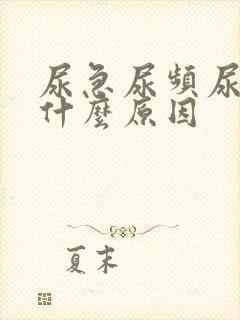 尿急尿頻尿
什麼原因
夏末